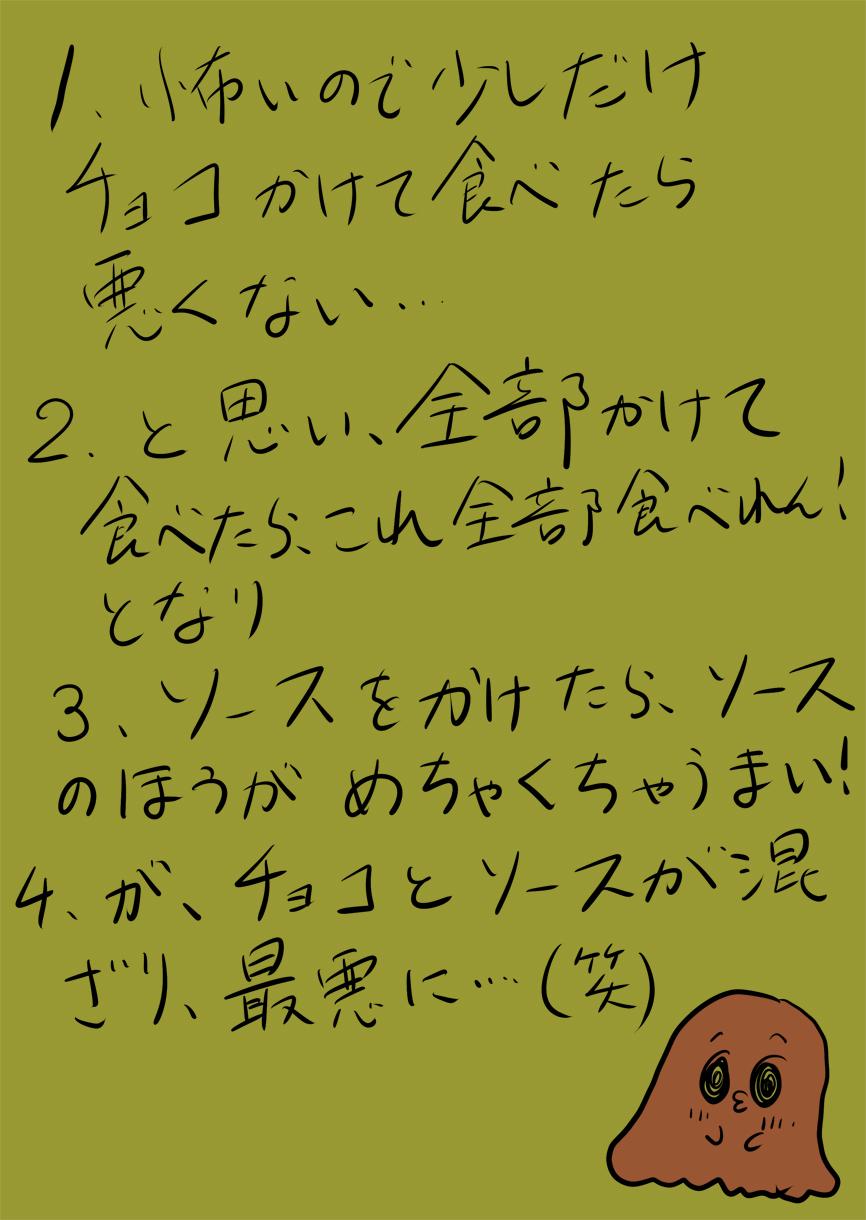 1、怖いので少しだけ
チョコかけて食べたら
悪くない…
2. と思い、全部かけて
食べたら、これ全部食べれん!
となり
3、ソースをかけたら、ソース
のほうがめちゃくちゃうまい!
4、が、チョコとソースが混
ざり、最悪に…(笑)